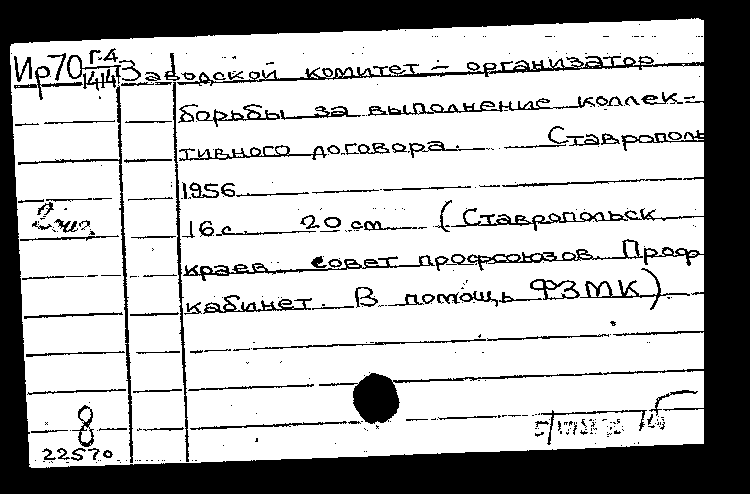 Ир70 Г.4
1414 Заводской комитет – организатор
борьбы за выполнение коллек-
тивного договора. Ставрополь
1956.
2 экз. 16 с. 20 cm (Ставропольск.
краев. совет профсоюзов. Проф
кабинет. В помощь ФЗМК)
8
22570